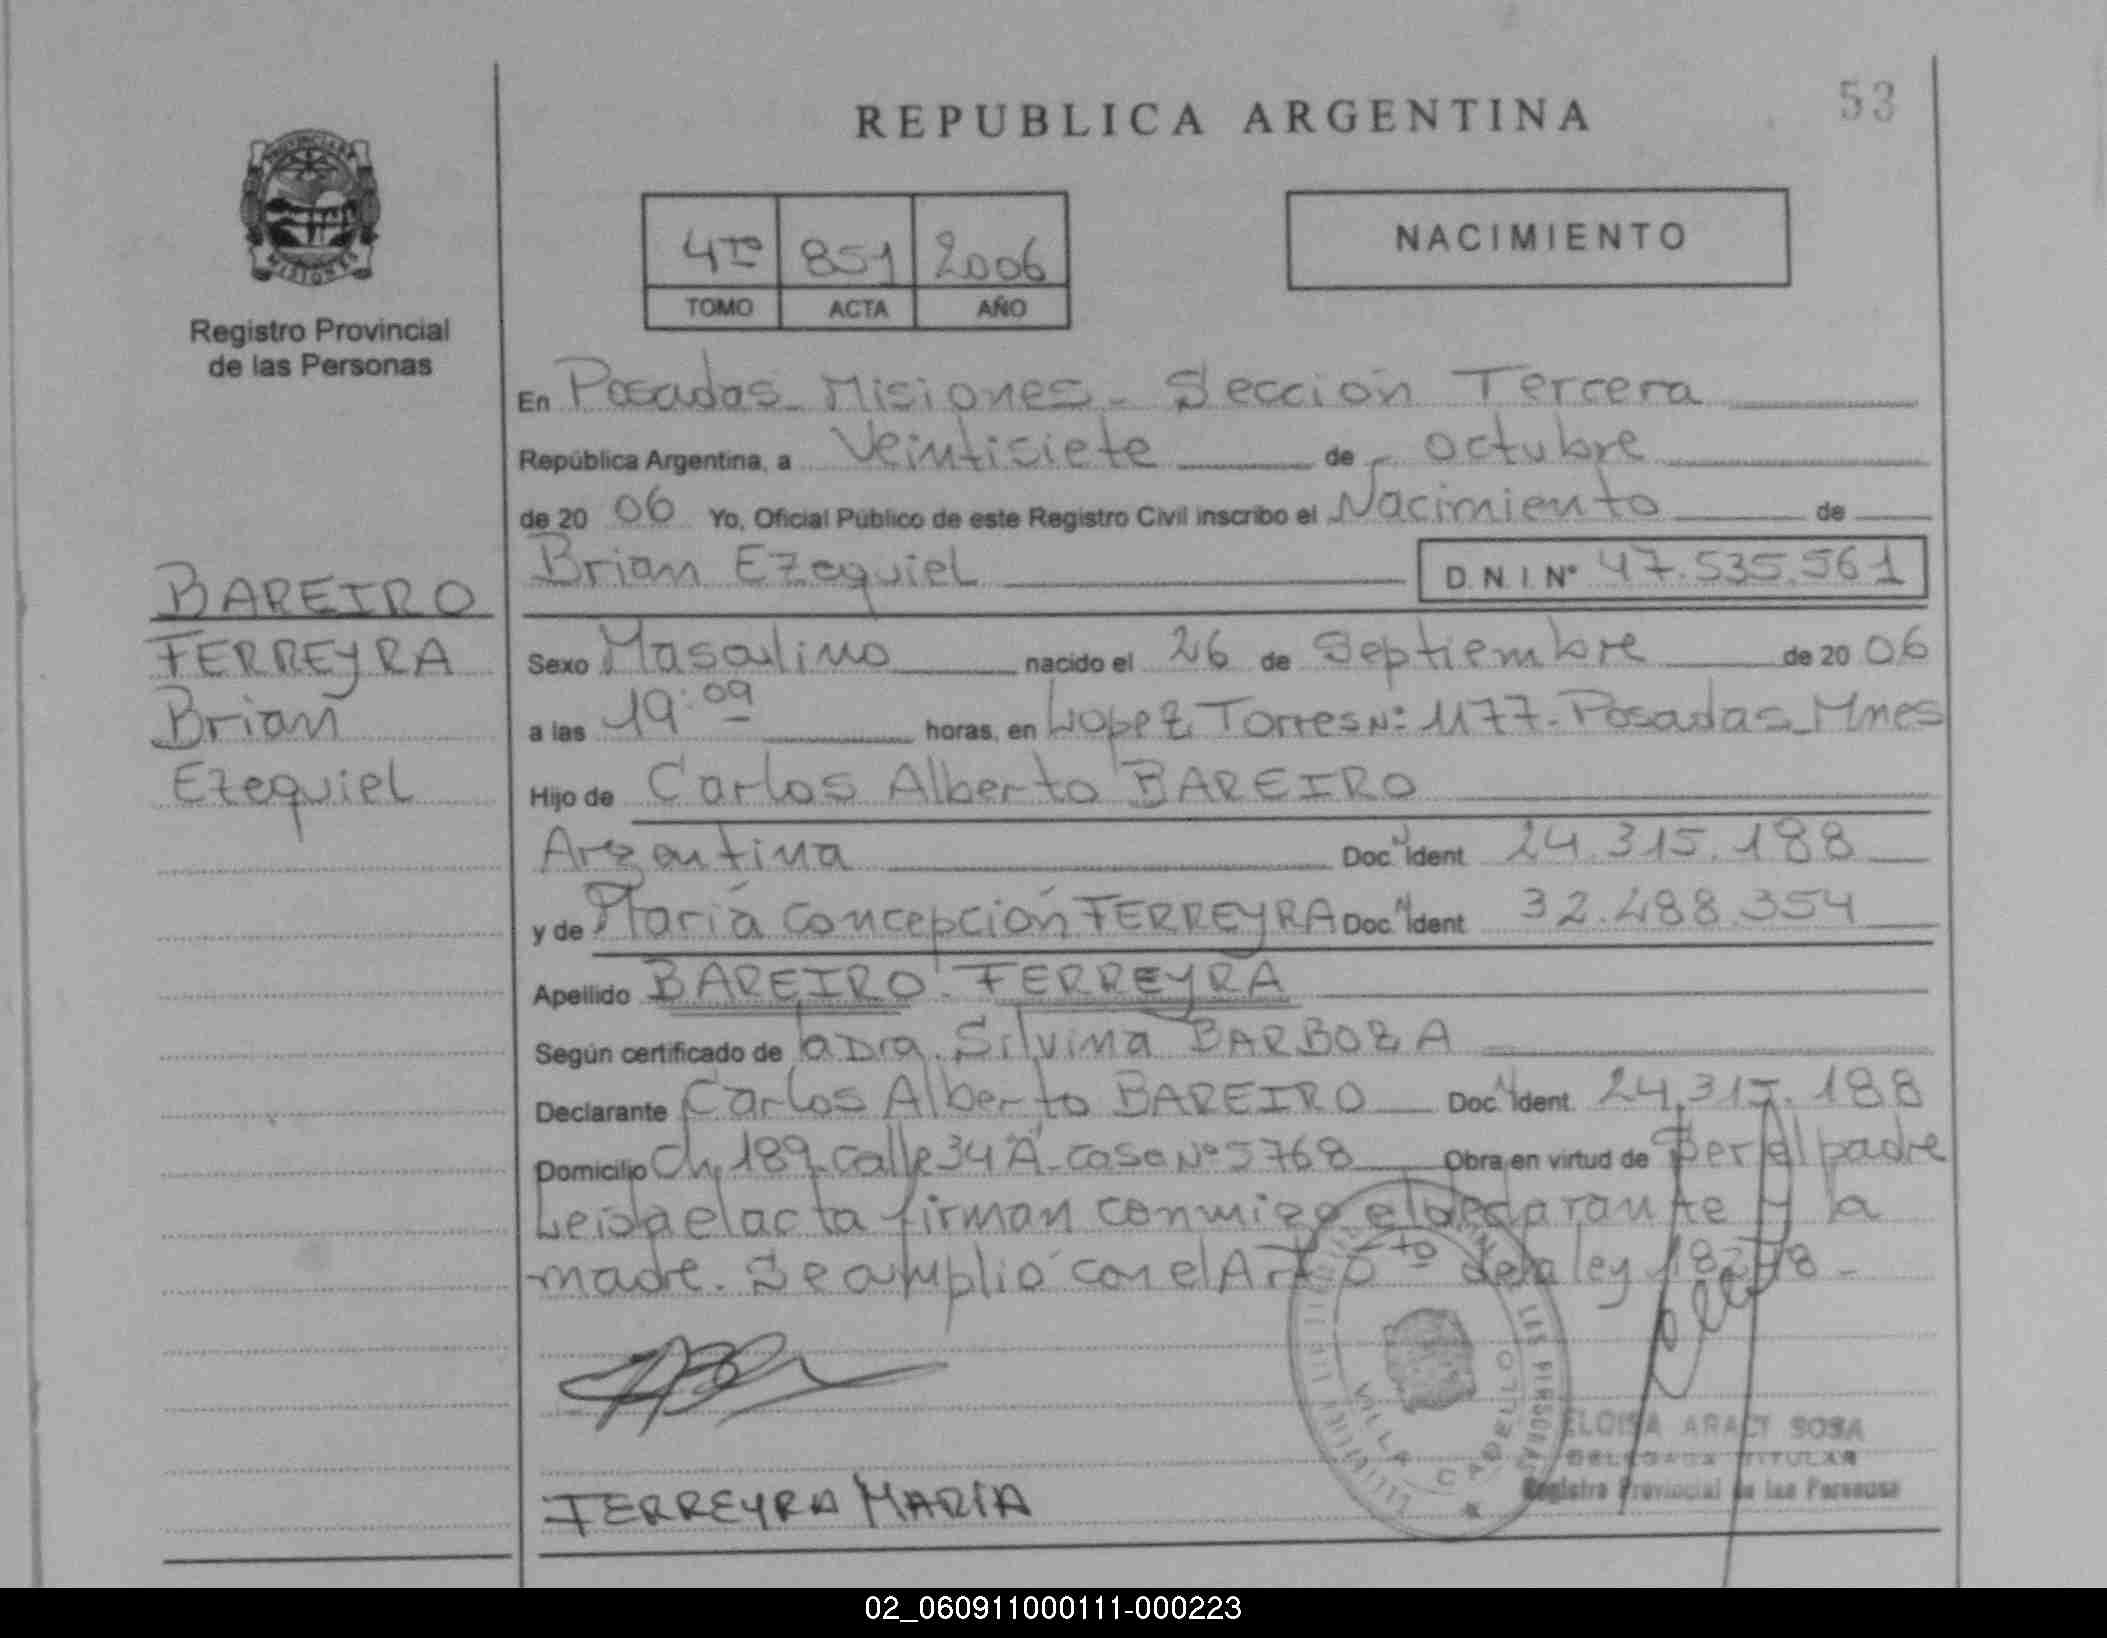 53
REPUBLICA ARGENTINA
PROVINCIA DE
MISIONES
4TO 851 2006
TOMO ACTA AÑO
NACIMIENTO
Registro Provincial
de las Personas
En Posadas - Misiones - Sección Tercera
República Argentina, a Veintisiete de octubre
de 20 06 Yo, Oficial Público de este Registro Civil inscribo el Nacimiento de
Brian Ezequiel D.N.I. Nº 47.535.561
BAREIRO
FERREYRA
Brian
Ezequiel
Sexo Masculino nacido el 26 de Septiembre de 20 06
a las 19:09 horas, en Lopez Torres Nº 1177 - Posadas - Mnes
Hijo de Carlos Alberto BAREIRO
Argentina Doc. Ident 24.315.188
y de María Concepción FERREYRA Doc. Ident 32.488.354
Apellido BAREIRO FERREYRA
Según certificado de la Dra. Silvina BARBOZA
Declarante Carlos Alberto BAREIRO Doc. Ident. 24.315.188
Domicilio Ch. 189 - calle 34 "A" - casa Nº 5768 Obra en virtud de Ser el padre
Leida el acta firman conmigo el declarante y la
madre. Se amplió con el Art 5to de la ley 18248 -
VILLA CABELLO
ELOISA ARACY SOSA
DELEGADA TITULAR
Registro Provincial de las Personas
FERREYRA MARIA
02_060911000111-000223